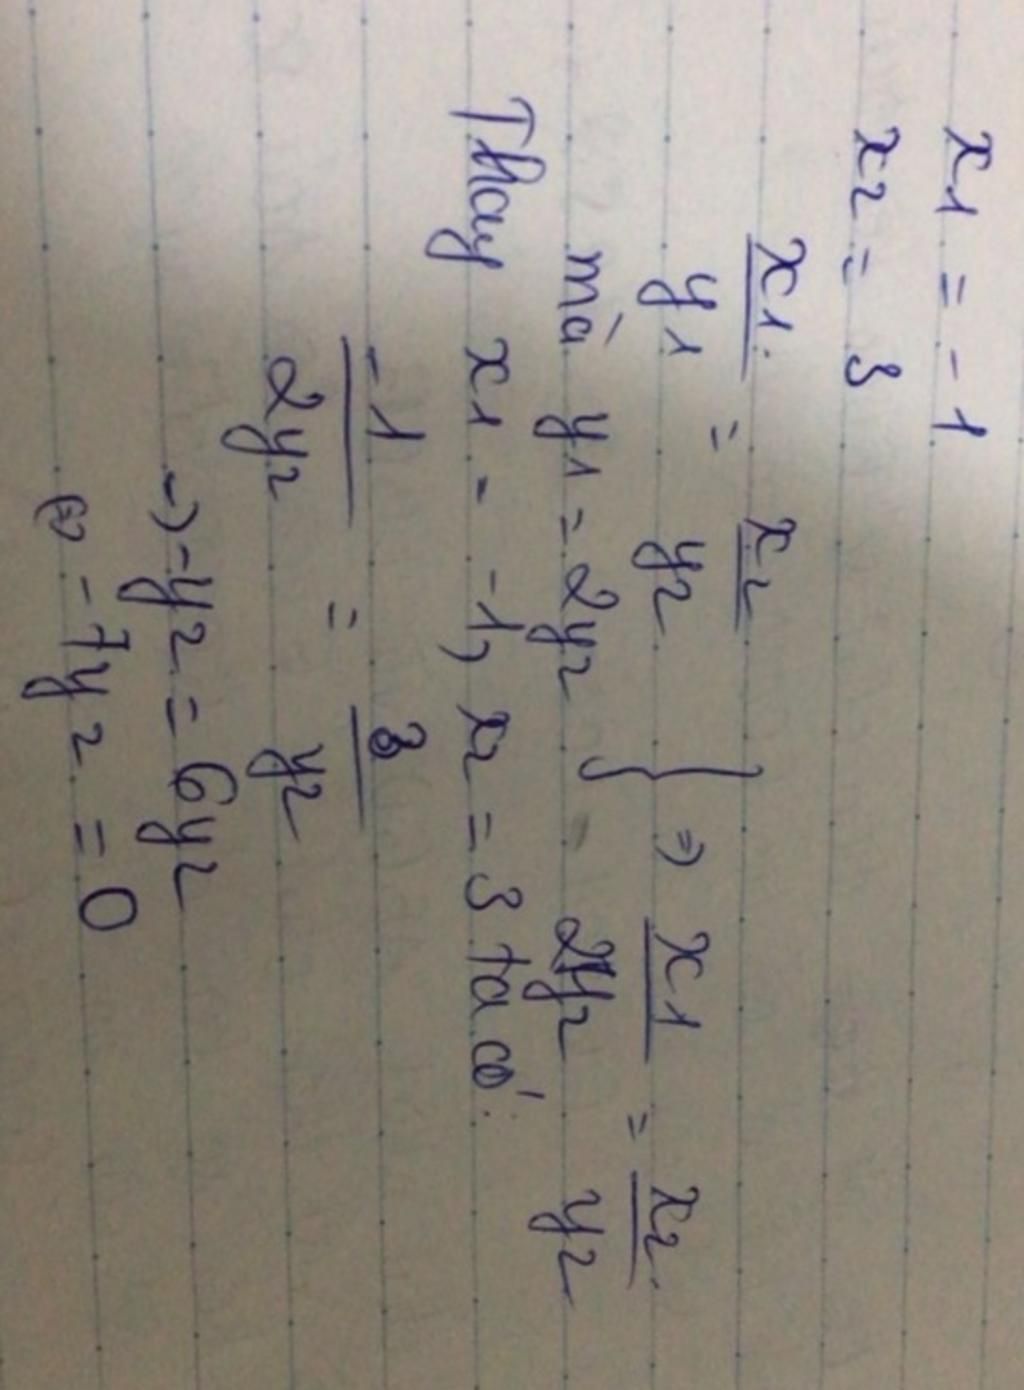 x1 = -1
x2 = 3
x1/y1 = x2/y2
mà y1 = 2y2 } => x1/2y2 = x2/y2
Thay x1 = -1, x2 = 3 ta có:
-1/2y2 = 3/y2
-> -y2 = 6y2
<=> -7y2 = 0